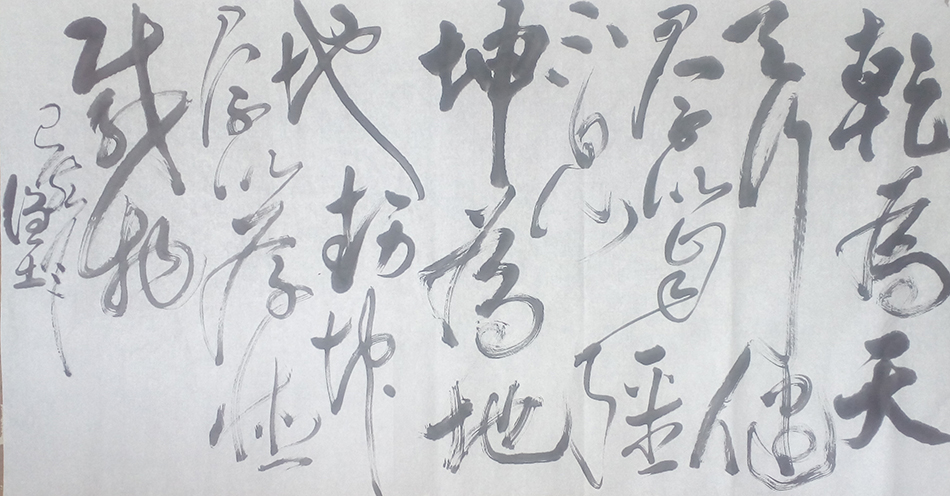 乾為天
天行健
君子以自強
不息
坤為地
地勢坤
君子以厚德
載物
己亥